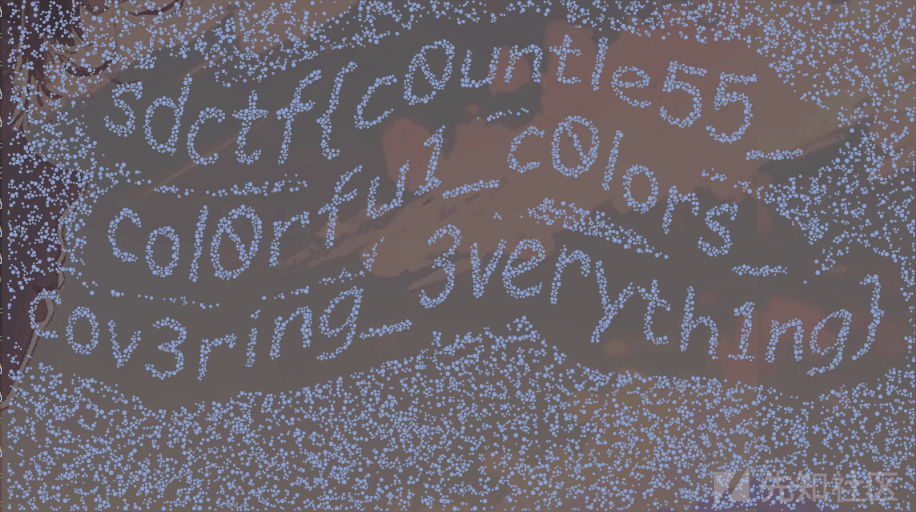 sdctf{c0untle55_
col0rfu1_c0lors_
cov3ring_3veryth1ng}
先知社区